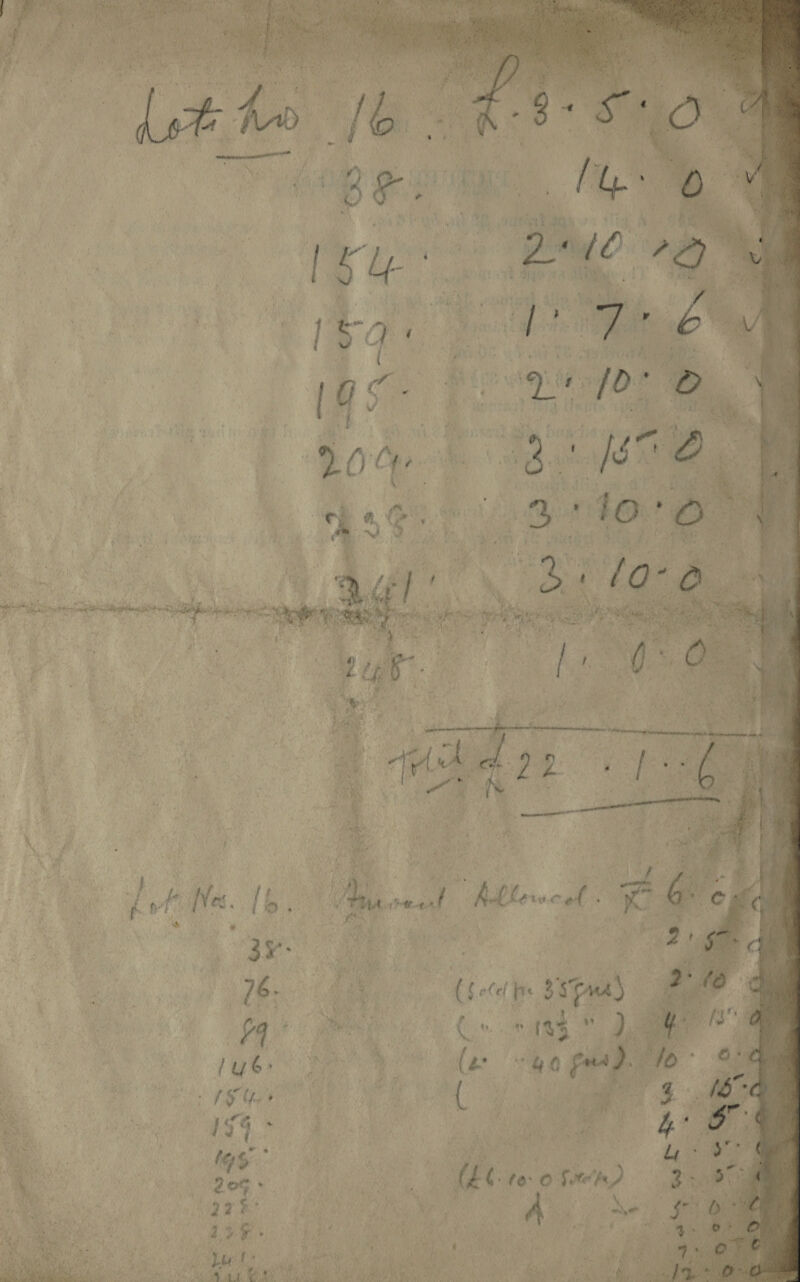 Lot No 16. £.3.5.0
38. 14.0
154. 2.10.0
159. 1.7.6
195. 2.10.0
209. 3.15.0
238. 3.10.0
241. 3.10.0
248. 1.0.0
Total £22.1.6
Lot Nos. 16. Amount Allowed. £6.0.0
38. 2.5.0
76. (Sold for 35 gns) 2.10
89. 4.15.0
146. (" " 40 gns). 10.0.0
154. ( 3.15.0
159. 4.5.
195. 4.5.
209. 3.5
228. 5.0.0
238. 0.0
241. 7.0.0